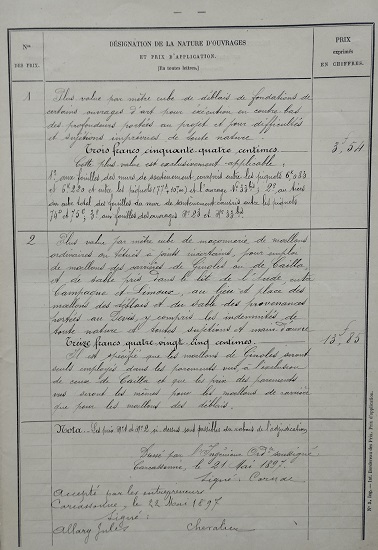 Nos
DES PRIX.
DÉSIGNATION DE LA NATURE D'OUVRAGES
ET PRIX D'APPLICATION.
(En toutes lettres.)
PRIX
exprimés
EN CHIFFRES.
1
Plus value par mètre cube de déblais de fondations de
certains ouvrages d'art pour exécution en contre-bas
des profondeurs portées au projet et pour difficultés
et sujétions imprévues de toute nature
Trois francs cinquante-quatre centimes.
3f54
Cette plus value est exclusivement applicable:
1º aux fouilles des murs de soutènement compris entre les piquets
et l'ouvrage Nº 33bis; 2º au tiers
du cube total des fouilles du mur de soutènement compris entre les piquets
; 3º aux fouilles des ouvrages Nos 23 et 33bis.
2
Plus value par mètre cube de maçonnerie de moellons
ordinaires ou têtués à joints incertains, pour emploi
de moellons des carrières de Ginoles ou de Cailla
et de sable pris dans le lit de l'Aude, entre
Campagne et, au lieu et place des
moellons des déblais et du sable des provenances
portées au Devis, y compris les indemnités de
toute nature et toutes sujétions et main d'œuvre
Treize francs quatre-vingt-cinq centimes.
13f85
Il est spécifié que les moellons de Ginoles seront
seuls employés dans les parements vus à l'exclusion
de ceux de Cailla et que les prix des parements
vus seront les mêmes pour les moellons de carrière
que pour les moellons des déblais.
Nota - Les prix Nº 1 et Nº 2 ci-dessus sont passibles du rabais de l'adjudication
Dressé par l'Ingénieur Ordre soussigné
Carcassonne, le 21 Mai 1897.
Signé:
Accepté par les entrepreneurs
Carcassonne, le 22 Mai 1897
Signé:
Allary Jules Chevalier